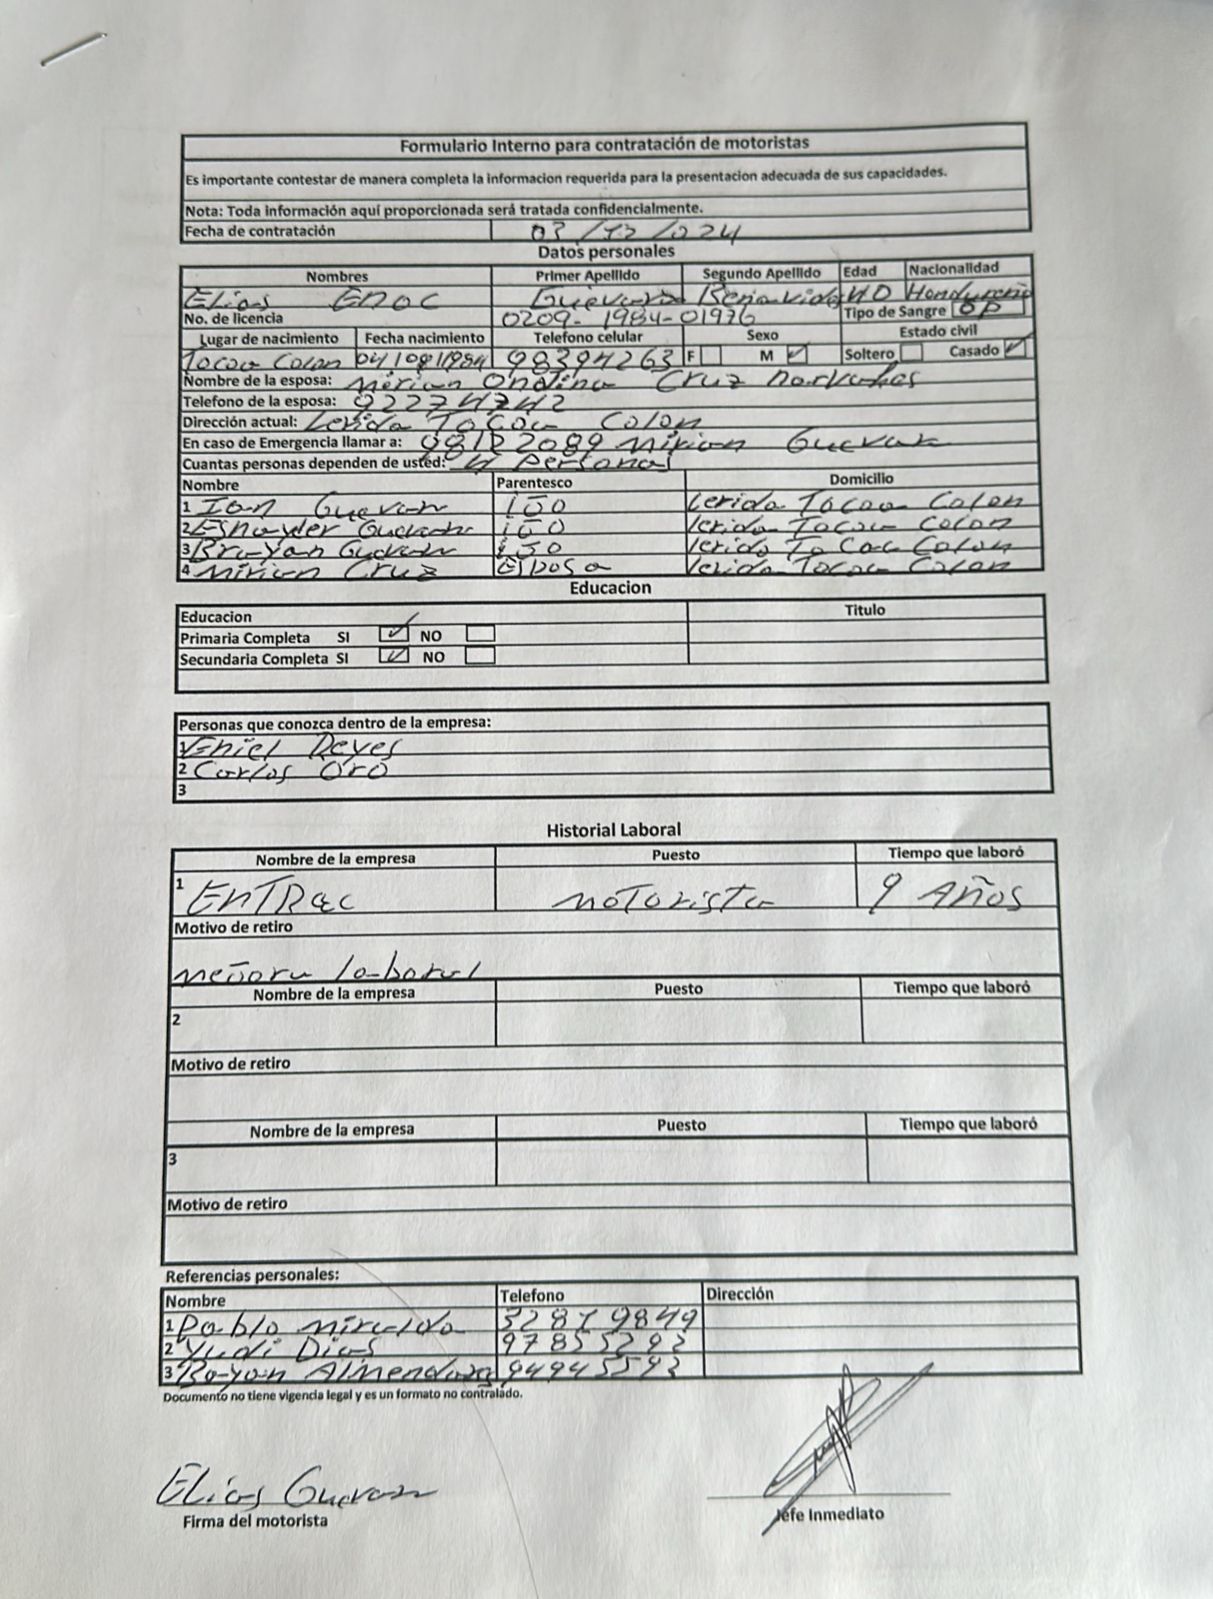 Formulario Interno para contratación de motoristas
Es importante contestar de manera completa la informacion requerida para la presentacion adecuada de sus capacidades.
Nota: Toda información aquí proporcionada será tratada confidencialmente.
Fecha de contratación 03/12/024
Datos personales
Nombres Primer Apellido Segundo Apellido Edad Nacionalidad
Elias Enoc Guevara Benavides 40 Hondureño
No. de licencia 0209-1984-01976 Tipo de Sangre OP
Lugar de nacimiento Fecha nacimiento Telefono celular Sexo Estado civil
Tocoa Colon 04/08/1984 98394263 F M Soltero Casado
Nombre de la esposa: Mirian Ondina Cruz
Telefono de la esposa: 92274742
Dirección actual: Lerida Tocoa Colon
En caso de Emergencia llamar a: Mirian Guevara
Cuantas personas dependen de usted: 4 Personas
Nombre Parentesco Domicilio
1 Ian Guevara iJo Lerida Tocoa Colon
2 Esnayder Guevara iJo lerida Tocoa Colon
3 Brayan Guevara iJo lerida Tocoa Colon
4 Mirian Cruz Esposa lerida Tocoa Colon
Educacion
Educacion Titulo
Primaria Completa SI NO
Secundaria Completa SI NO
Personas que conozca dentro de la empresa:
1 Reyes
2 Carlos Oro
3
Historial Laboral
Nombre de la empresa Puesto Tiempo que laboró
1 EnTRac moTorista 9 Años
Motivo de retiro
meJora laboral
Nombre de la empresa Puesto Tiempo que laboró
2
Motivo de retiro
Nombre de la empresa Puesto Tiempo que laboró
3
Motivo de retiro
Referencias personales:
Nombre Telefono Dirección
1 Pablo miralda 32879849
2 Yudi Dias 97855293
3 Brayan Almendarez 94945593
Documento no tiene vigencia legal y es un formato no contralado.
Elias Guevara
Firma del motorista
Jefe Inmediato